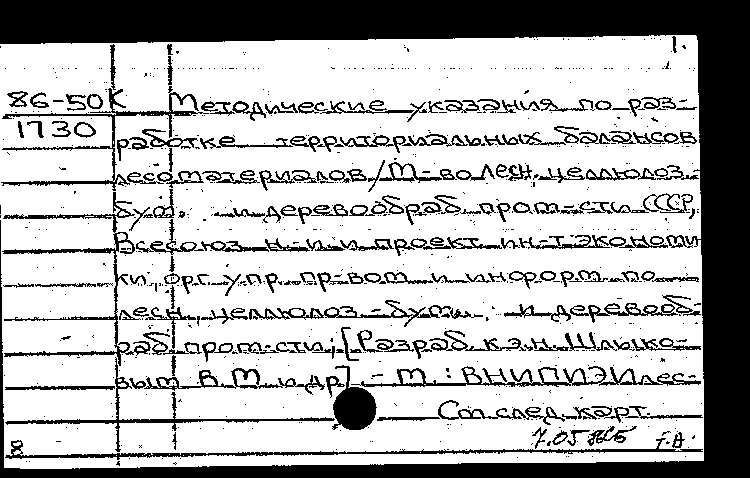 1.
86-50К Методические указания по раз-
1730 работке территориальных балансов
лесоматериалов/М-во лесн., целлюлоз.-
бум. и деревообраб. пром-сти СССР,
Всесоюз. н.-и. и проект. ин-т экономи
ки, орг. упр. пр-вом и информ. по
лесн., целлюлоз.-бум. и деревооб-
раб. пром-сти; [Разраб. к.э.н. Шлыко-
вым В.М. и др]. - М. : ВНИПИЭИлес-
См. след. карт.
7.05 F.A.
8